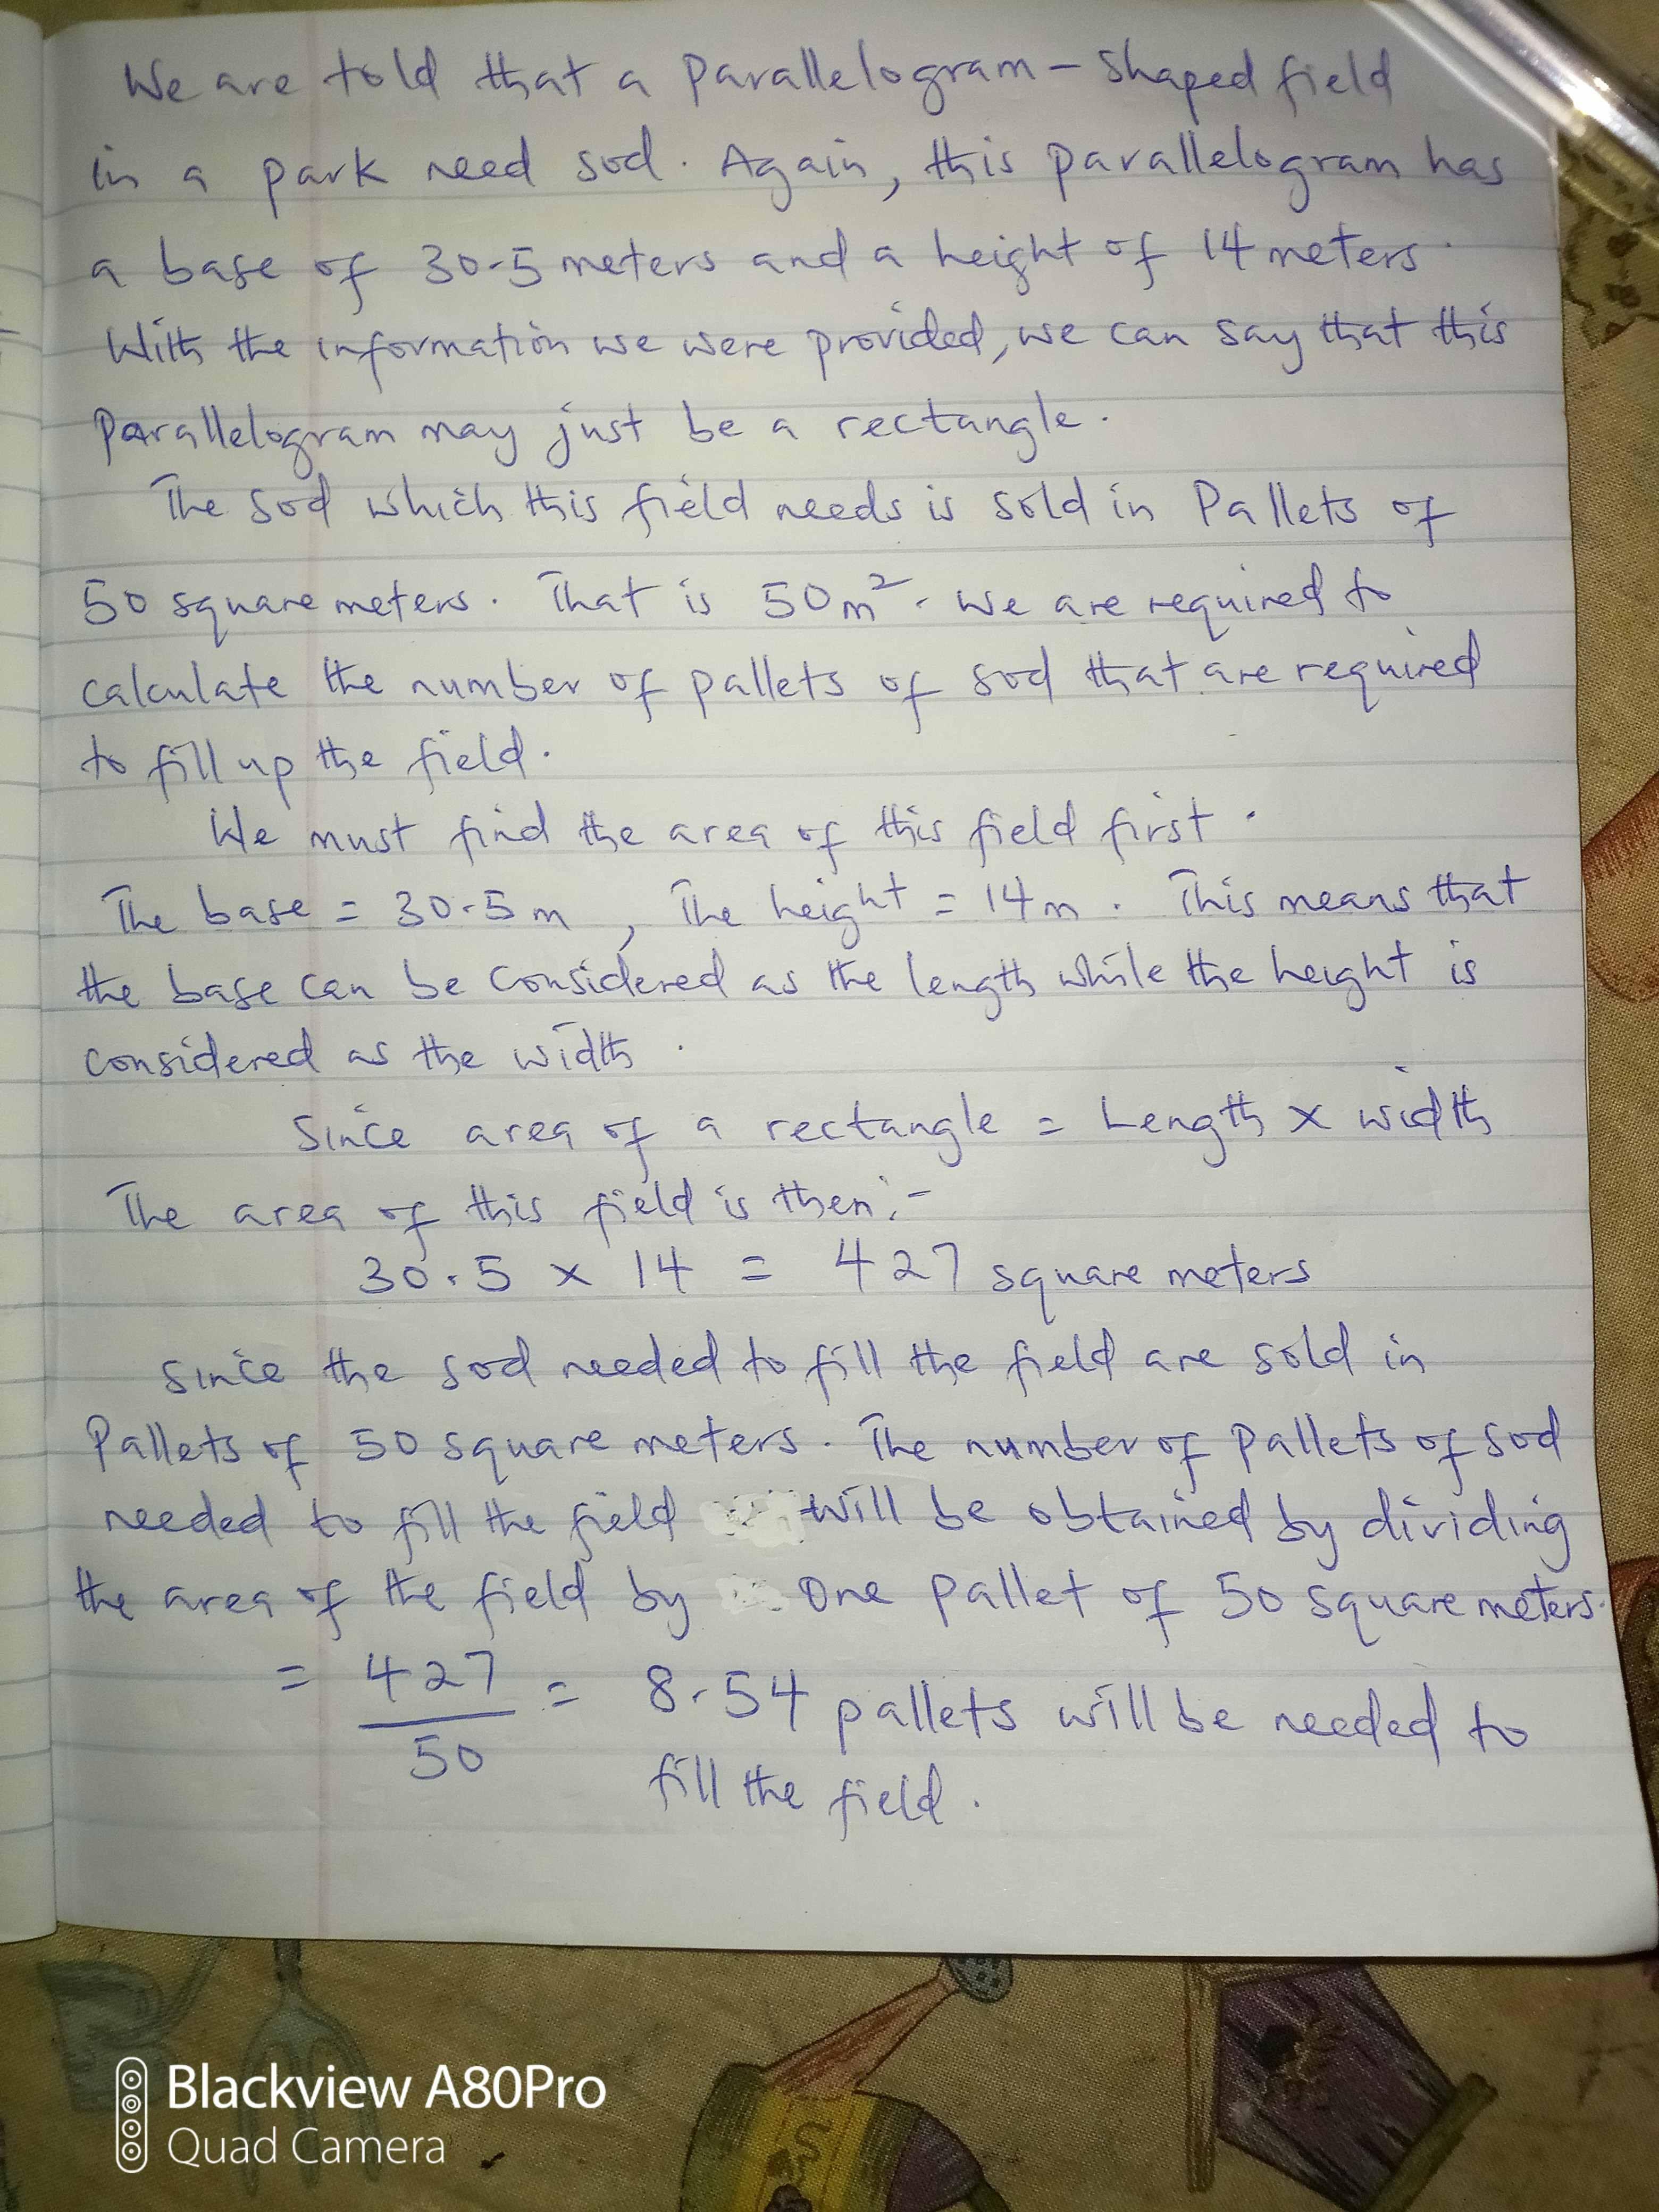 We are told that a parallelogram-shaped field
in a park need sod. Again, this parallelogram has
a base of 30.5 meters and a height of 14 meters.
With the information we were provided, we can say that this
Parallelogram may just be a rectangle.
The sod which this field needs is sold in Pallets of
50 square meters. That is 50m². We are required to
calculate the number of pallets of sod that are required
to fill up the field.
We must find the area of this field first.
The base = 30.5m, The height = 14m. This means that
the base can be considered as the length while the height is
considered as the width.
Since area of a rectangle = Length x width
The area of this field is then:-
30.5 x 14 = 427 square meters
Since the sod needed to fill the field are sold in
Pallets of 50 square meters. The number of pallets of sod
needed to fill the field will be obtained by dividing
the area of the field by One pallet of 50 square meters.
= 427/50 = 8.54 pallets will be needed to
fill the field.
Blackview A80Pro
Quad Camera